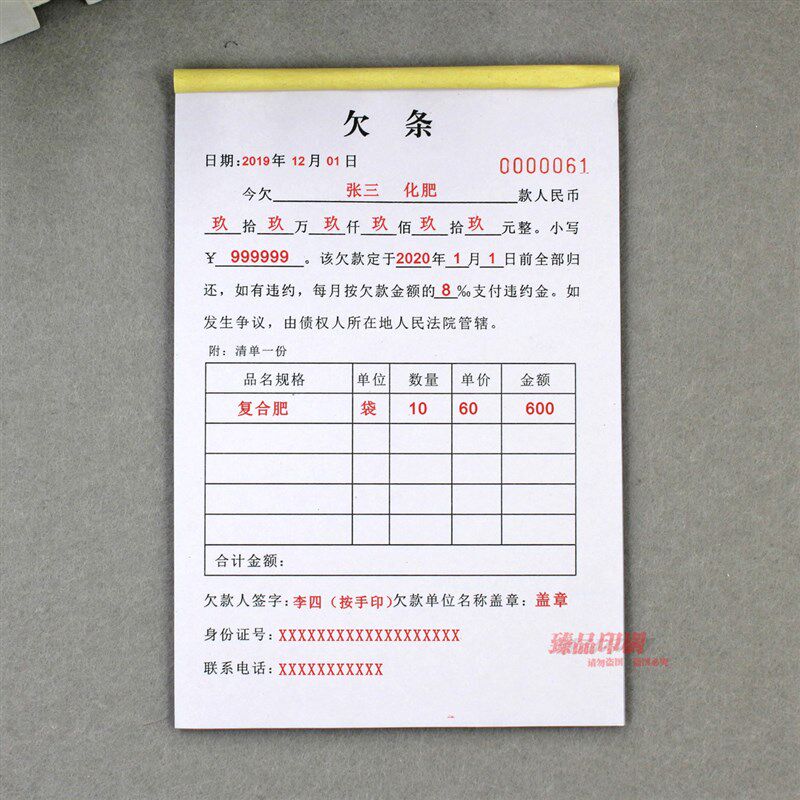 欠 条
日期:2019年 12 月 01 日 0000061
今欠 张三 化肥 款人民币
玖 拾 玖 万 玖 仟 玖 佰 玖 拾 玖 元整。小写
￥ 999999 。该欠款定于2020年 1 月 1 日前全部归
还，如有违约，每月按欠款金额的 8 ‰支付违约金。如
发生争议，由债权人所在地人民法院管辖。
附：清单一份
品名规格 单位 数量 单价 金额
复合肥 袋 10 60 600
合计金额：
欠款人签字：李四（按手印）欠款单位名称盖章：盖章
身份证号：XXXXXXXXXXXXXXXXXXX
联系电话：XXXXXXXXXXX
臻品印刷
请勿盗图 盗图必究